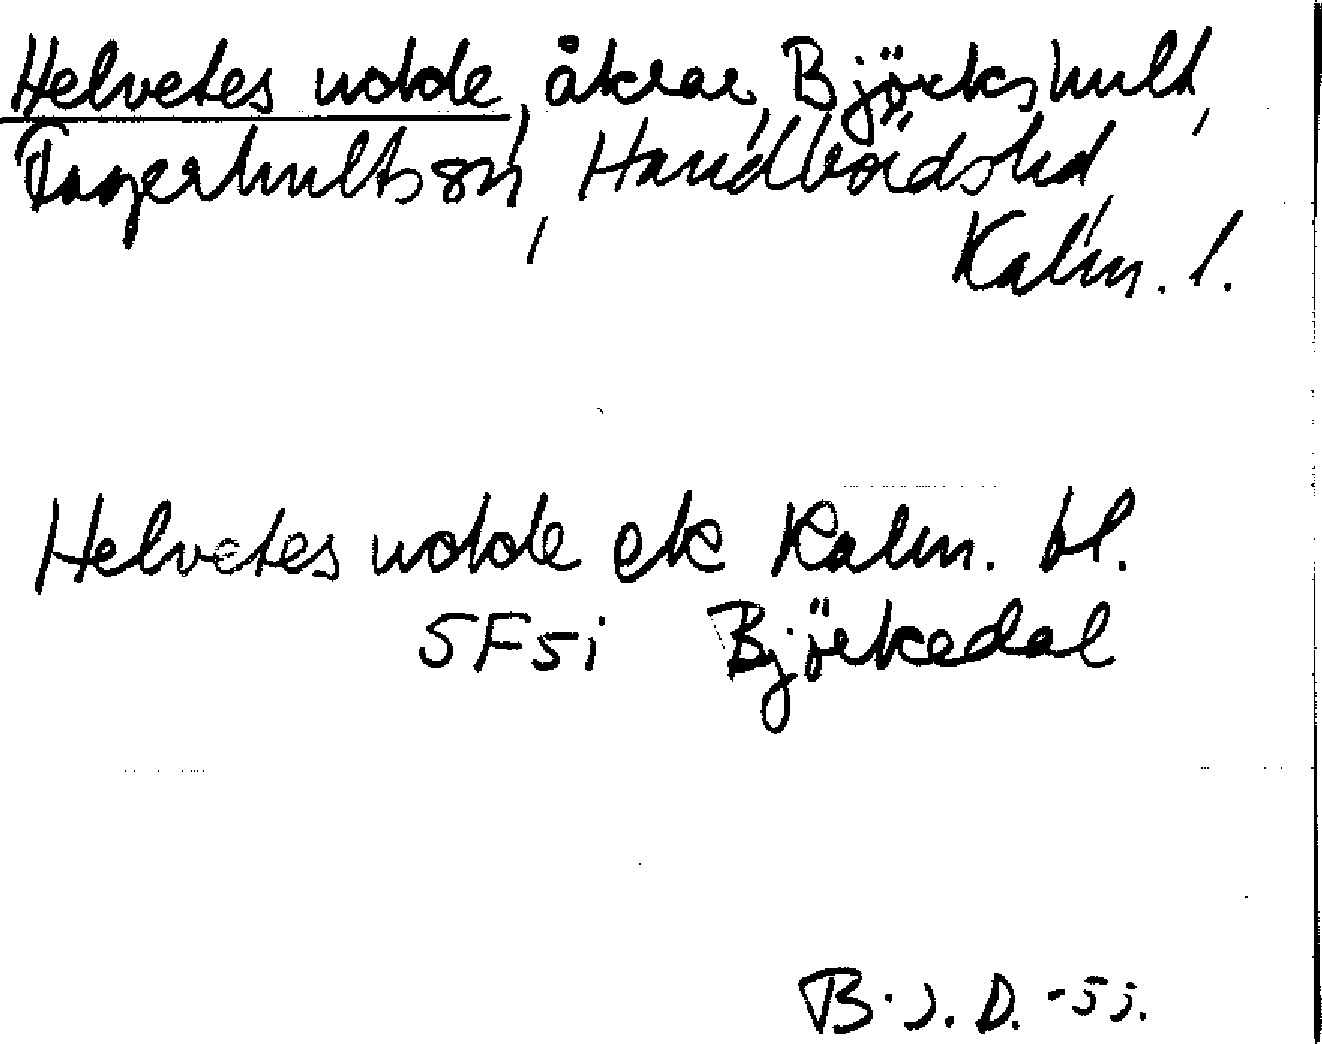 Helvetes udde, åkrar, Björkshult,
Fagerhults sn, Handbörds hd,
Kalm. l.
Helvetes udde ek Kalm. bl.
SF5i Björkedal
B.J.D. -55.